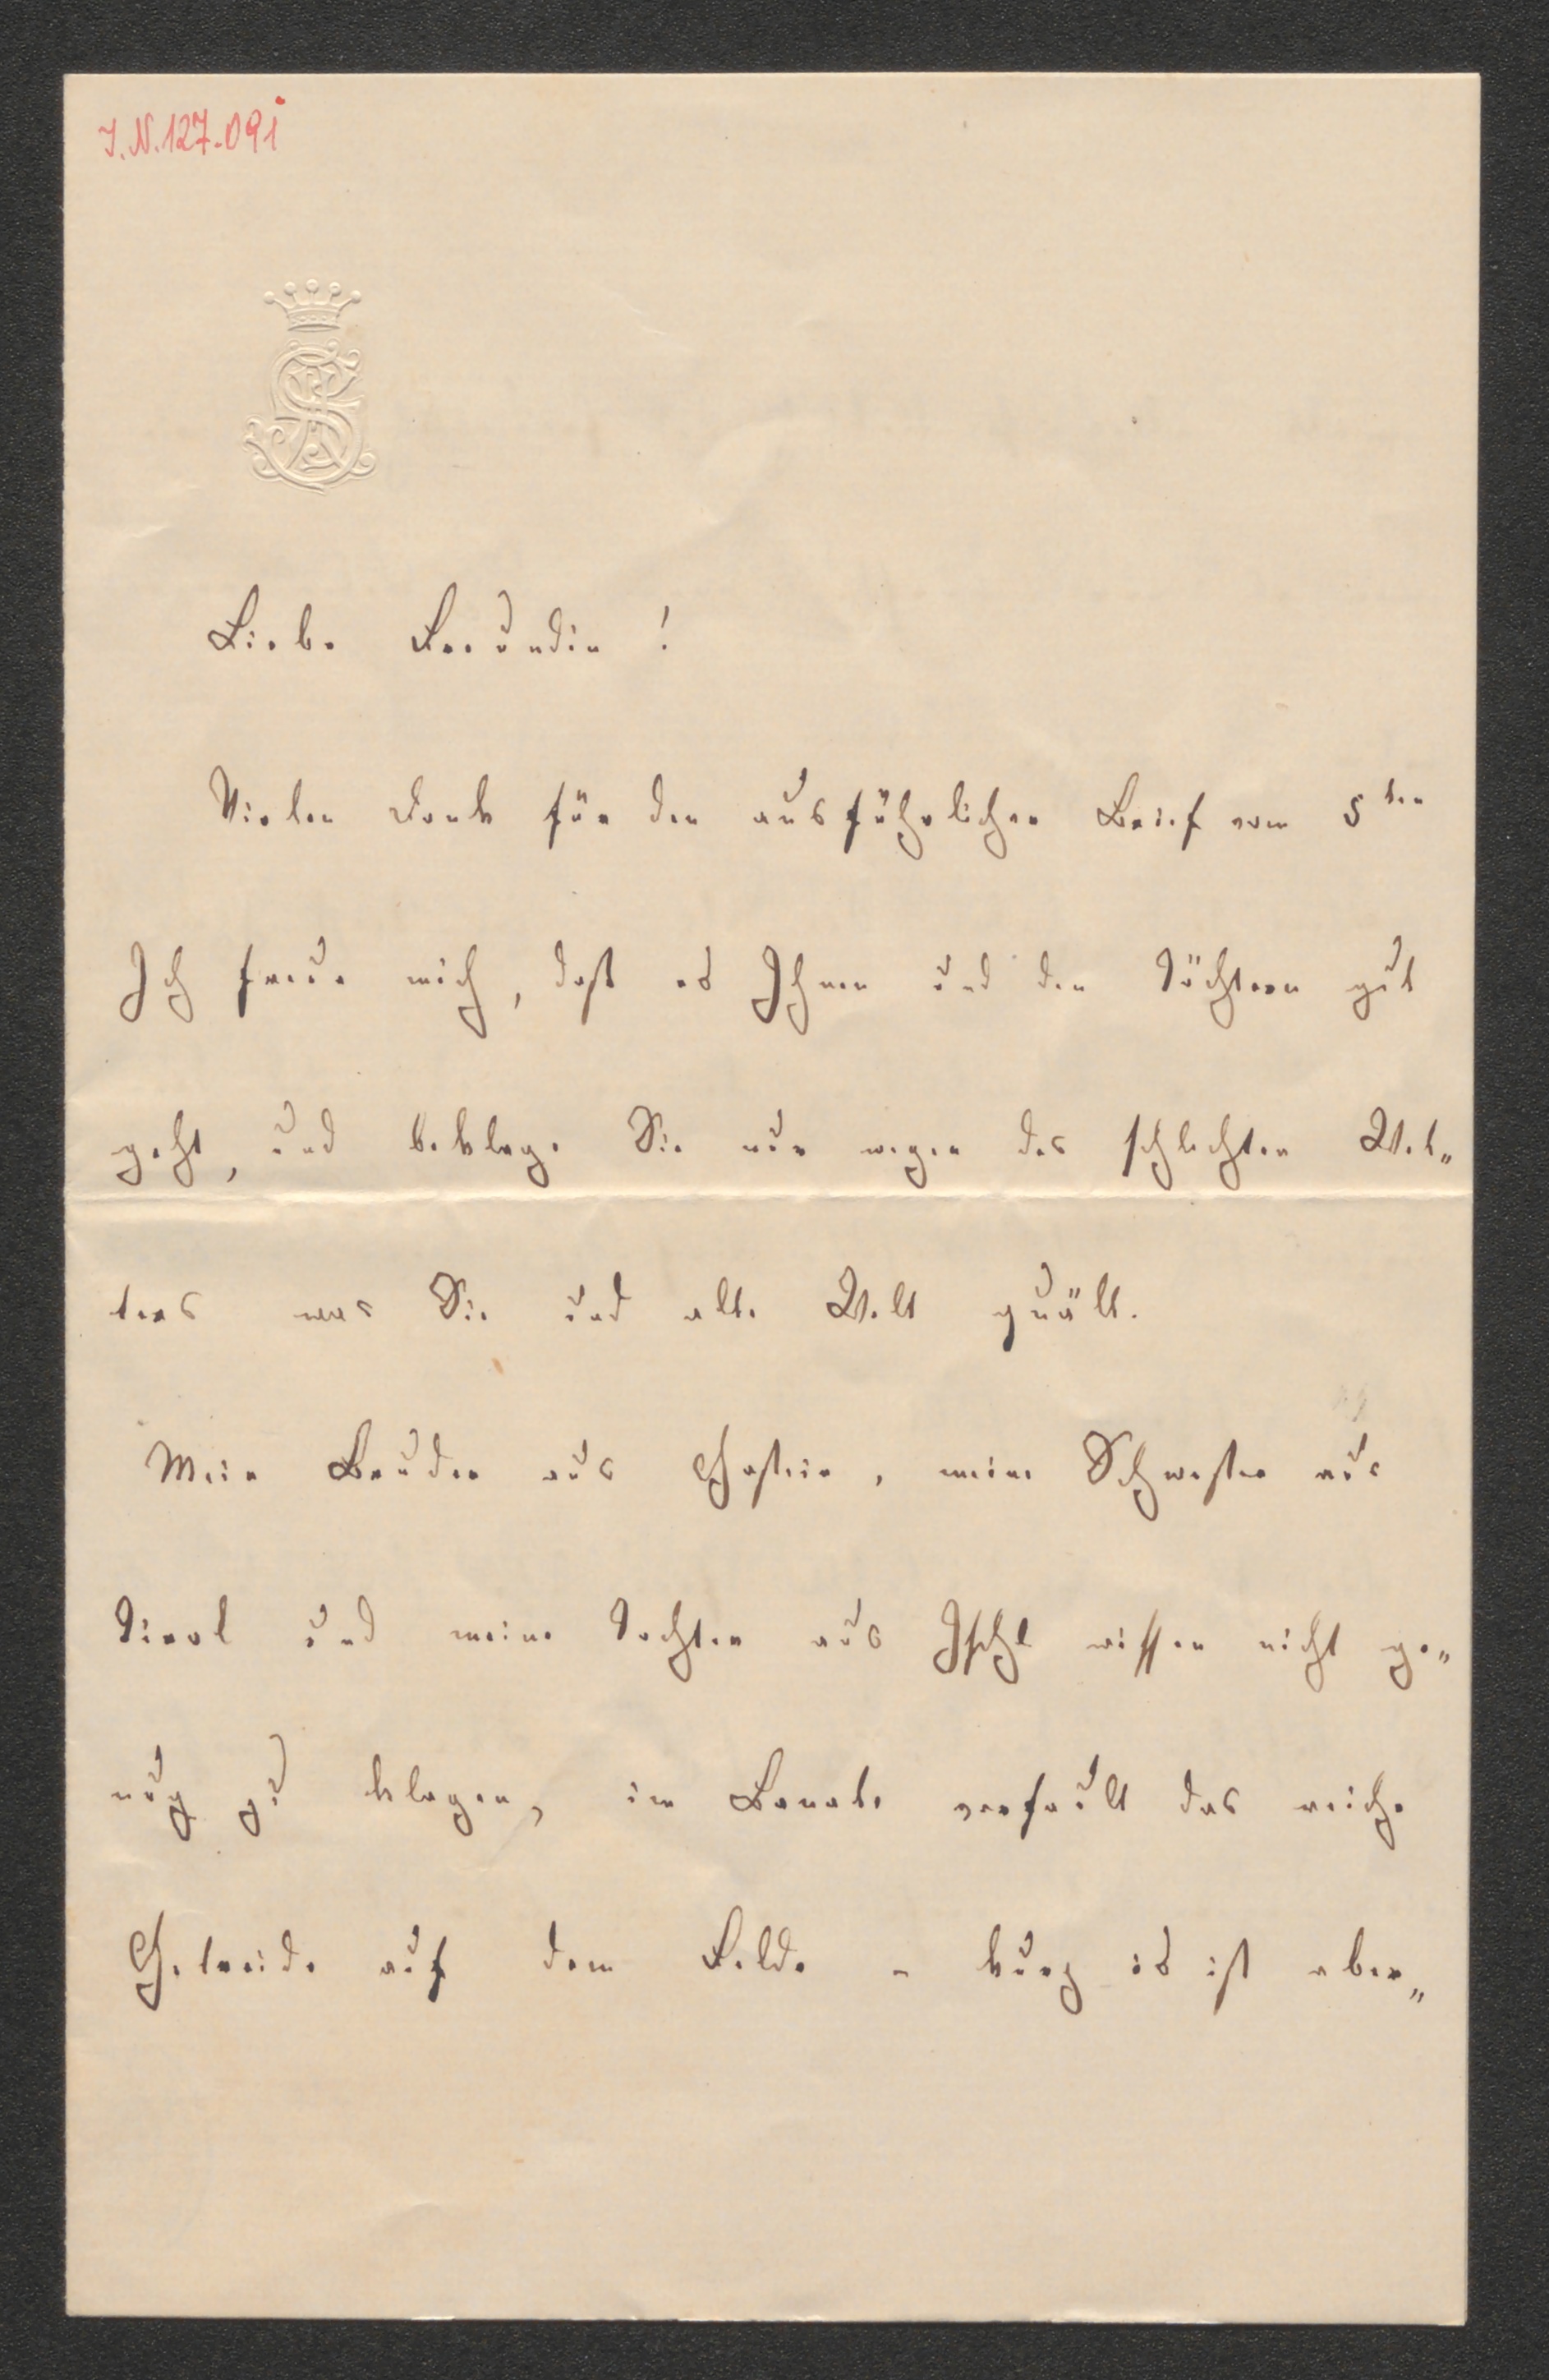 I.N. 127.091
Liebe Freundin!
Vielen Dank für den ausführlichen Brief vom 5ten
Ich freue mich, daß es Ihnen und den Töchtern gut
geht, und beklage Sie nur wegen des schlechten Wet„
ters was Sie und alle Welt quält.
Mein Bruder aus Gastein, meine Schwester aus
Tirol und meine Tochter aus Ischl wissen nicht ge„
nug zu klagen, im Banate verfault das reiche
Getreide auf dem Felde – kurz es ist aber„